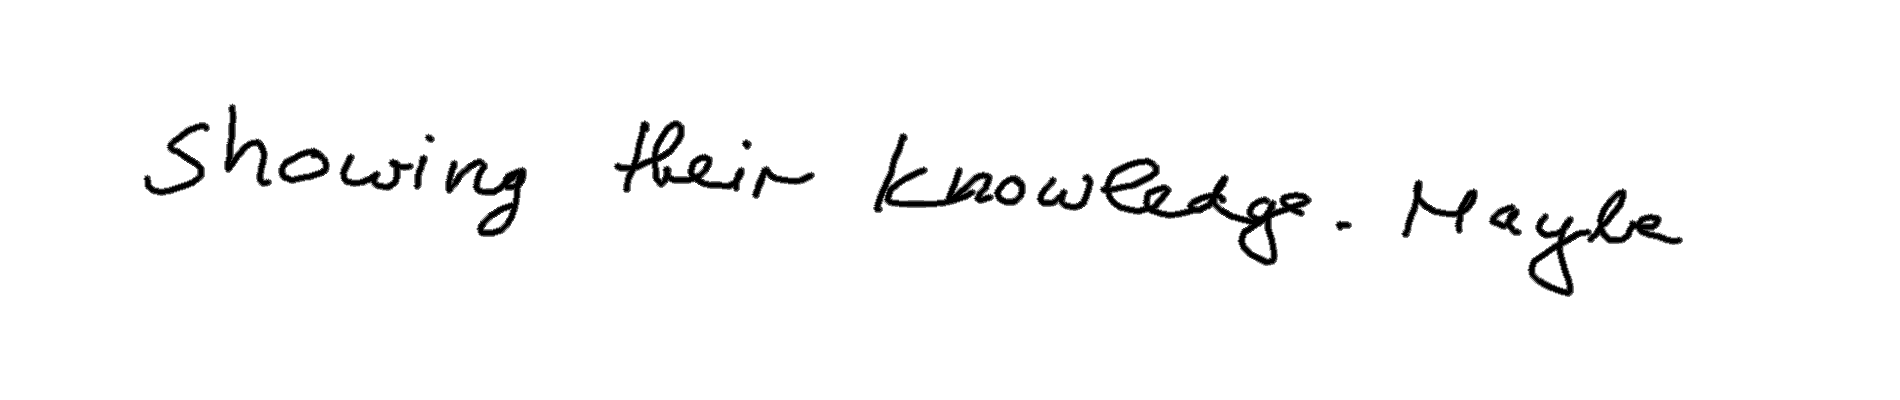 showing their knowledge. Maybe